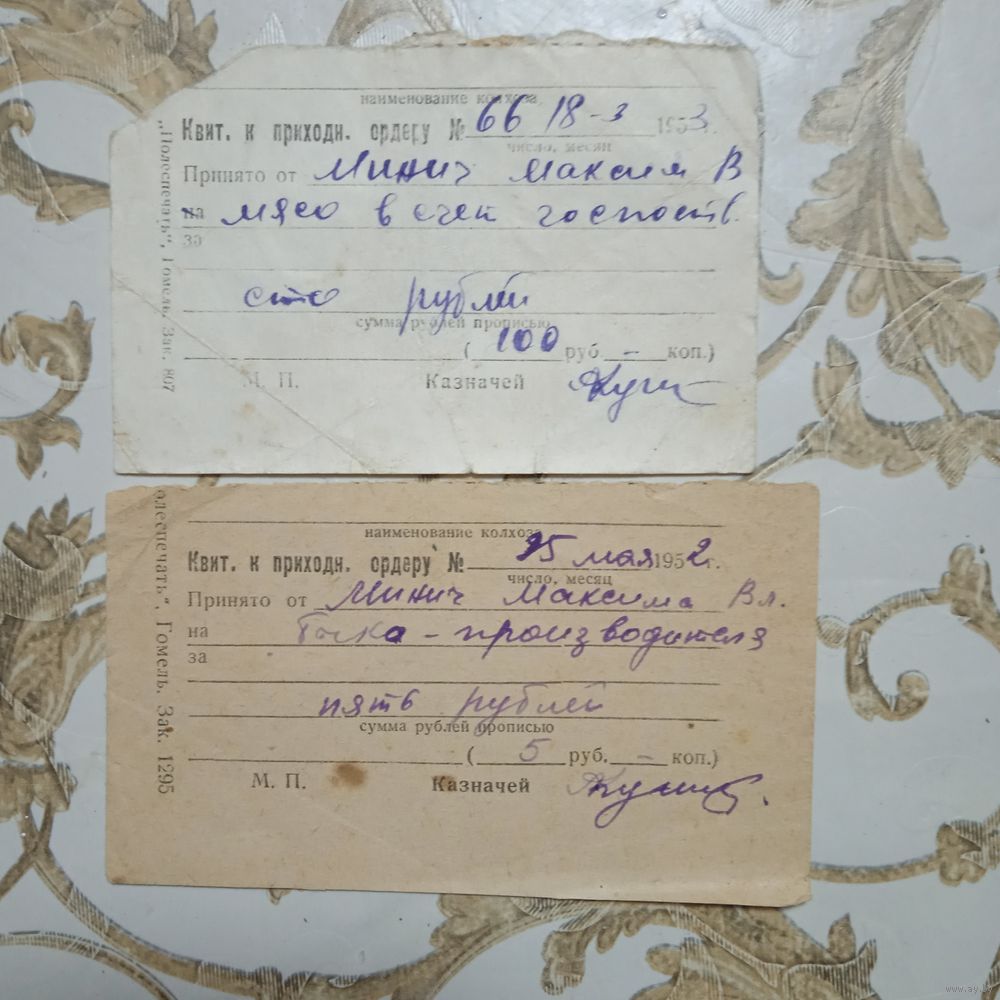 наименование колхоза
Квит. к приходн. ордеру № 66 18-3 1953г.
число, месяц
Принято от Минич Максим В
на мясо в счет госпоств.
за
сто рублей
сумма рублей прописью
(100 руб. – коп.)
М. П. Казначей
„Полеспечать“, Гомель. Зак. 807
наименование колхоза
Квит. к приходн. ордеру № 15 мая 1952г.
число, месяц
Принято от Минич Максима Вл.
на быка-производителя
за
пять рублей
сумма рублей прописью
(5 руб. – коп.)
М. П. Казначей
олеспечать“, Гомель. Зак. 1295
www.ay.by